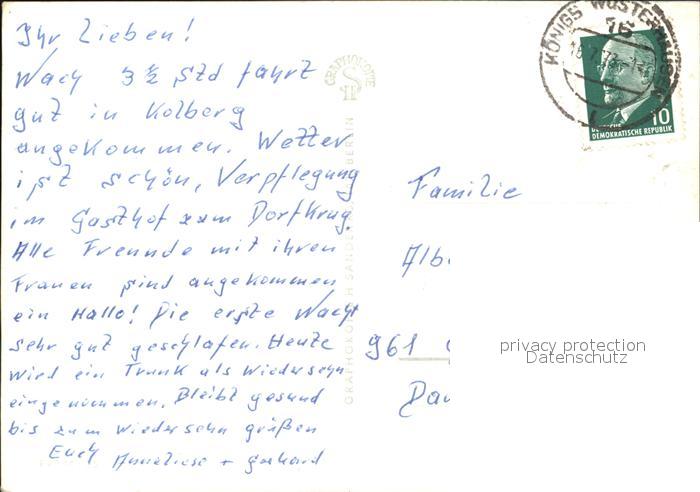 Ihr Lieben!
Nach 3 ½ Std fahrt
gut in Kolberg
angekommen. Wetter
ist schön, Verpflegung
im Gasthof zum Dorfkrug.
Alle Freunde mit ihren
Frauen sind angekommen
ein Hallo! Die erste Nacht
sehr gut geschlafen. Heute
wird ein Trunk als Wiedersehn
eingenommen. Bleibt gesund
bis zum wiedersehn grüßen
Euch Anneliese + Gerhard
GRAPHOKOPIE
H
S
KÖNIGS WUSTERHAUSEN
10
DEUTSCHE
DEMOKRATISCHE REPUBLIK
Familie
Alb
961
privacy protection
Datenschutz